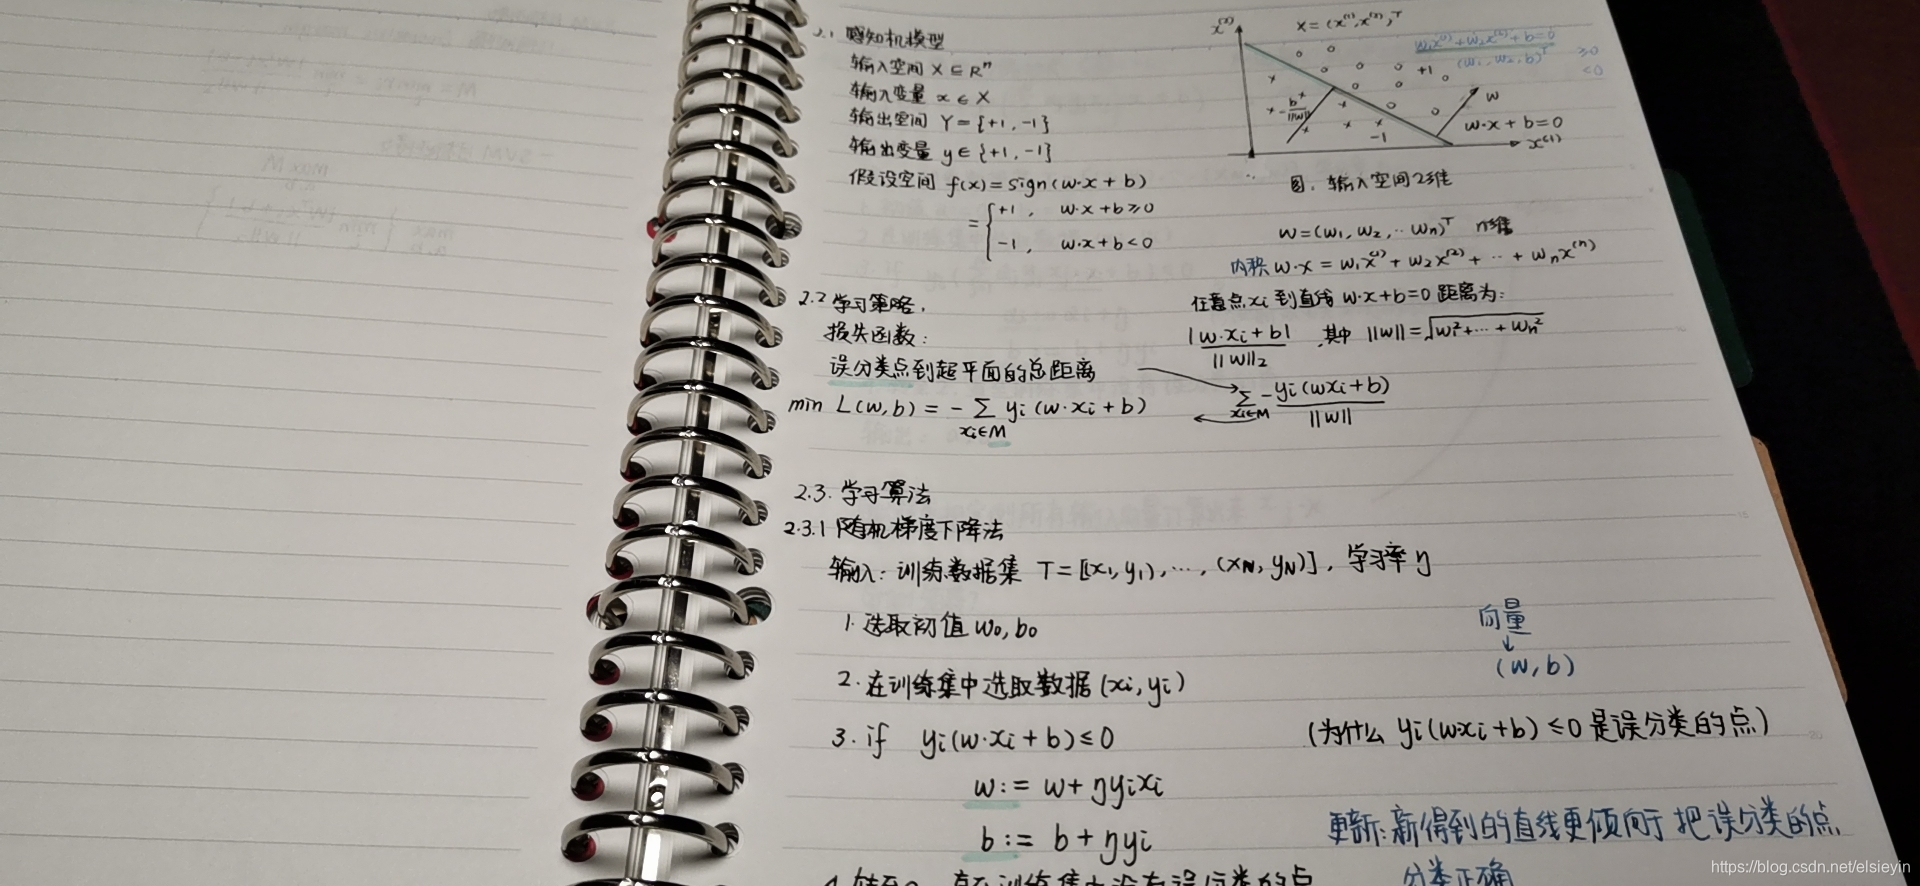 2.1 感知机模型
输入空间 X ⊆ Rⁿ
输入变量 x ∈ X
输出空间 Y = {+1, -1}
输出变量 y ∈ {+1, -1}
假设空间 f(x) = sign(w·x + b)
= { +1, w·x + b ≥ 0
-1, w·x + b < 0
x⁽²⁾
x = (x⁽¹⁾, x⁽²⁾)ᵀ
w₁x⁽¹⁾ + w₂x⁽²⁾ + b = 0
(w₁, w₂, b)ᵀ
≥0
<0
+1
-b/||w||
w
w·x + b = 0
-1
x⁽¹⁾
图. 输入空间2维
w = (w₁, w₂, ·· wₙ)ᵀ n维
内积 w·x = w₁x⁽¹⁾ + w₂x⁽²⁾ + ·· + wₙx⁽ⁿ⁾
2.2 学习策略.
损失函数:
误分类点到超平面的总距离
min L(w,b) = -∑ yi (w·xi + b)
xi∈M
任意点xi 到直线 w·x+b=0 距离为:
|w·xi + b| / ||w||₂ , 其中 ||w|| = √(w² + ··· + wn²)
∑ -yi(wxi+b) / ||w||
xi∈M
2.3. 学习算法
2.3.1 随机梯度下降法
输入: 训练数据集 T = [x₁, y₁), ···, (xN, yN)], 学习率 η
1. 选取初值 w₀, b₀
向量
↓
(w, b)
2. 在训练集中选取数据 (xi, yi)
3. if yi(w·xi + b) ≤ 0
(为什么 yi(w·xi+b) ≤ 0 是误分类的点)
w := w + ηyixi
b := b + ηyi
更新: 新得到的直线更倾向于 把误分类的点
分类正确
https://blog.csdn.net/elsieyin